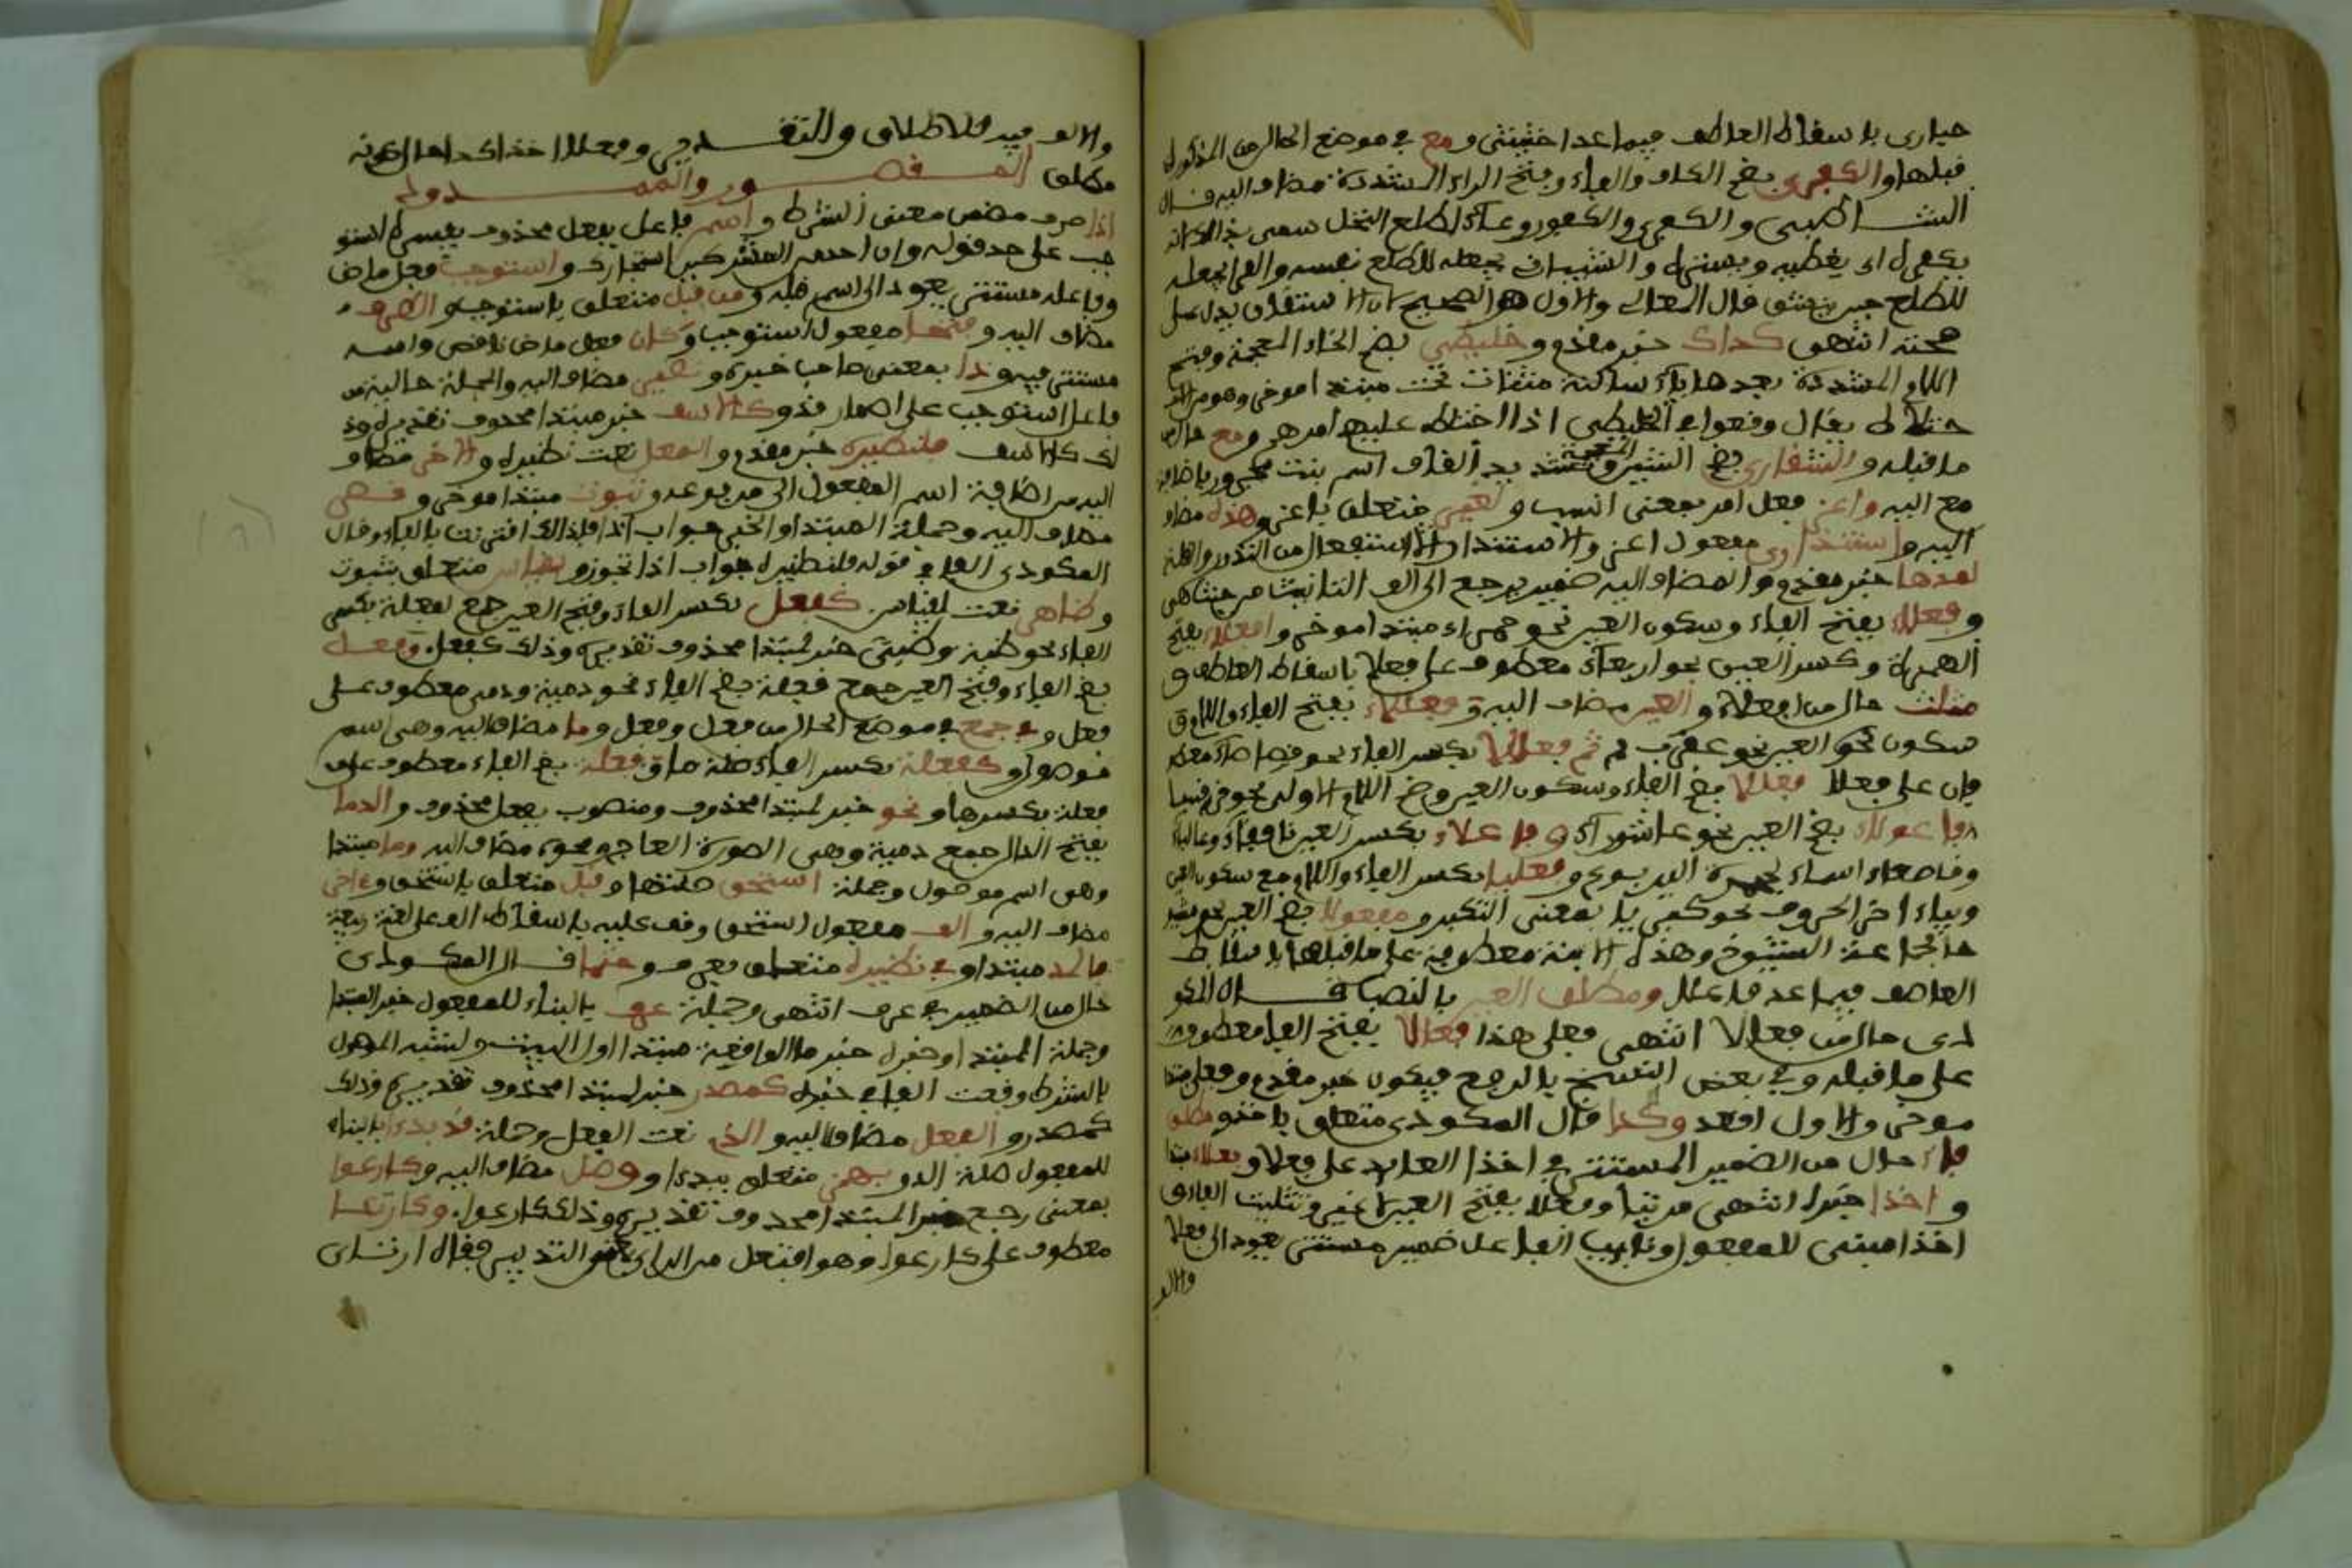 حبارى بإسقاط العاطف فيما عدا خثيثى ومع في موضع الحال من المذكورات
قبلها والكفرى بضم الكاف والفاء وفتح الراء المشددة مضاف اليه قال
الشاطبي والكفرى والكفور وعاء طلع النخل سمي بذلك لانه
يكفره اي يغطيه ويستره والشيباني يجعله للطلع نفسه والفراء يجعله
للطلع حين ينشق قال المعالي والاول هو الصحيح لان الاشتقاق يدل على
صحته انتهى كذاك خبر مقدم وخليطى بضم الخاء المعجمة وفتح
اللام المشددة بعدها ياء ساكنة مثناة تحت مبتدا موخر وهو من الا
ختلاط يقال وقعوا في الخليطى اذا اختلط عليهم امرهم ومع حال من
ما قبله والشقارى بضم الشين المعجمة وتشديد القاف اسم نبت مجرور باضافة
مع اليه واعز فعل امر بمعنى انسب ولغير متعلق باعز وهذه مضاف
اليه واستندارا مفعول اعز والاستندار الاستفعال من الندور والقلة
لمدها خبر مقدم والمضاف اليه ضمير يرجع الى الف التانيث من حيث هي
وفعلاء بفتح الفاء وسكون العين نحو حمراء مبتدا موخر وافعلاء بفتح
الهمزة وكسر العين نحو اربعاء معطوف على فعلاء باسقاط العاطف و
مثلث حال من افعلاء والعين مضاف اليه وفعللاء بفتح الفاء واللام و
سكون العين نحو عقرباء ثم فعالا بكسر الفاء نحو قصاصاء معطو
فان على فعلاء فعللا بضم الفاء وسكون العين وضم اللام الاولى نحو قرفصا
وفاعولاء بضم العين نحو عاشوراء وفاعلاء بكسر العين نحو قاصعاء
وقاصعاء اسماء لجحرة اليربوع وفعليا بكسر الفاء واللام مع سكون العين
وبياء اخر الحروف نحو كبرياء بمعنى التكبر ومفعولا بضم العين نحو مشيو
خاء لجماعة الشيوخ وهذه الابنية معطوفة على ما قبلها باسقاط
العاطف فيما عدا فاعلاء ومطلق العين بالنصب قال المكو
دي حال من فعالا انتهى فعلى هذا فعالا بفتح الفاء معطوف
على ما قبله وفي بعض النسخ بالرفع فيكون خبر مقدم وفعلاء مبتدا
موخر والاول اقعد وكذا قال المكودي متعلق باخذ ومطلق
فاء حال من الضمير المستتر في اخذا العايد على فعلاء وفعلاء مبتدا
واخذا خبره انتهى مرتبا وفعلاء بفتح العين لا غير وتثليث الفاء و
اخذا مبني للمفعول ونايب الفاعل ضمير مستتر يعود الى فعلاء
والالف
والالف فيه للاطلاق والتقدير وفعلاء اخذا كذا حال كونه
مطلق المقصور والممدود
اذا ظرف مضمن معنى الشرط واسم فاعل بفعل محذوف يفسره استو
جب على حد قوله وان احد من المشركين استجارك واستوجب فعل ماض
وفاعله مستتر يعود الى اسم قبله ومن قبل متعلق باستوجب والطرف
مضاف اليه وفتحا مفعول استوجب وكان فعل ماض ناقص واسمه
مستتر فيه وذا بمعنى صاحب خبره ونظير مضاف اليه والجملة حالية من
فاعل استوجب على اضمار قد وكالاسف خبر مبتدا محذوف تقديره وذ
لك كالاسف فلنظيره خبر مقدم والمعل نعت نظيره والاخر مضاف
اليه من اضافة اسم المفعول الى مرفوعه وثبوت مبتدا موخر وقصر
مضاف اليه وجملة المبتدا والخبر جواب اذا فلذلك اقترنت بالفاء وقال
المكودي الفاء في قوله فلنظيره جواب اذا نحوز وبقياس متعلق بثبوت
وظاهر نعت لقياس كفعل بكسر الفاء وفتح العين جمع لفعلة بكسر
الفاء نحو ظبة وظبى خبر لمبتدا محذوف تقديره وذلك كفعل وفعل
بضم الفاء وفتح العين جمع فعلة بضم الفاء نحو دمية ودمى معطوف على
فعل وفي جمع في موضع الحال من فعل وفعل وما مضاف اليه وهي اسم
موصول وكفعلة بكسر الفاء صلة ما وفعلة بضم الفاء معطوف على
فعلة بكسرها ونحو خبر لمبتدا محذوف ومنصوب بفعل محذوف والدما
بفتح الدال جمع دمية وهي الصورة العاج ونحوه مضاف اليه وما مبتدا
وهو اسم موصول وجملة استحق صلتها وقبل متعلق باستحق وءاخر
مضاف اليه والف مفعول استحق وقف عليه باسقاط الالف على لغة ربيعة
فالمد مبتدا وفي نظيره متعلق بعرف وحتما قال المكودي
حال من الضمير في عرف انتهى وجملة عرف بالبناء للمفعول خبر المبتدا
وجملة المبتدا وخبره خبر ما الواقعة مبتدا اول البيت ولشبه الموصول
بالشرط وقعت الفاء في خبره كمصدر خبر لمبتدا محذوف تقديره وذلك
كمصدر والفعل مضاف اليه والذي نعت الفعل وجملة قد بدءا بالبناء
للمفعول صلة الذي وبهمز متعلق ببدءا ووصل مضاف اليه وكارعوا
بمعنى رجع خبر لمبتدا محذوف تقديره وذلك كارعوا وكارتئا
معطوف على كارعوا وهو افتعل من الراي وهو التدبير فقال ارتئاى